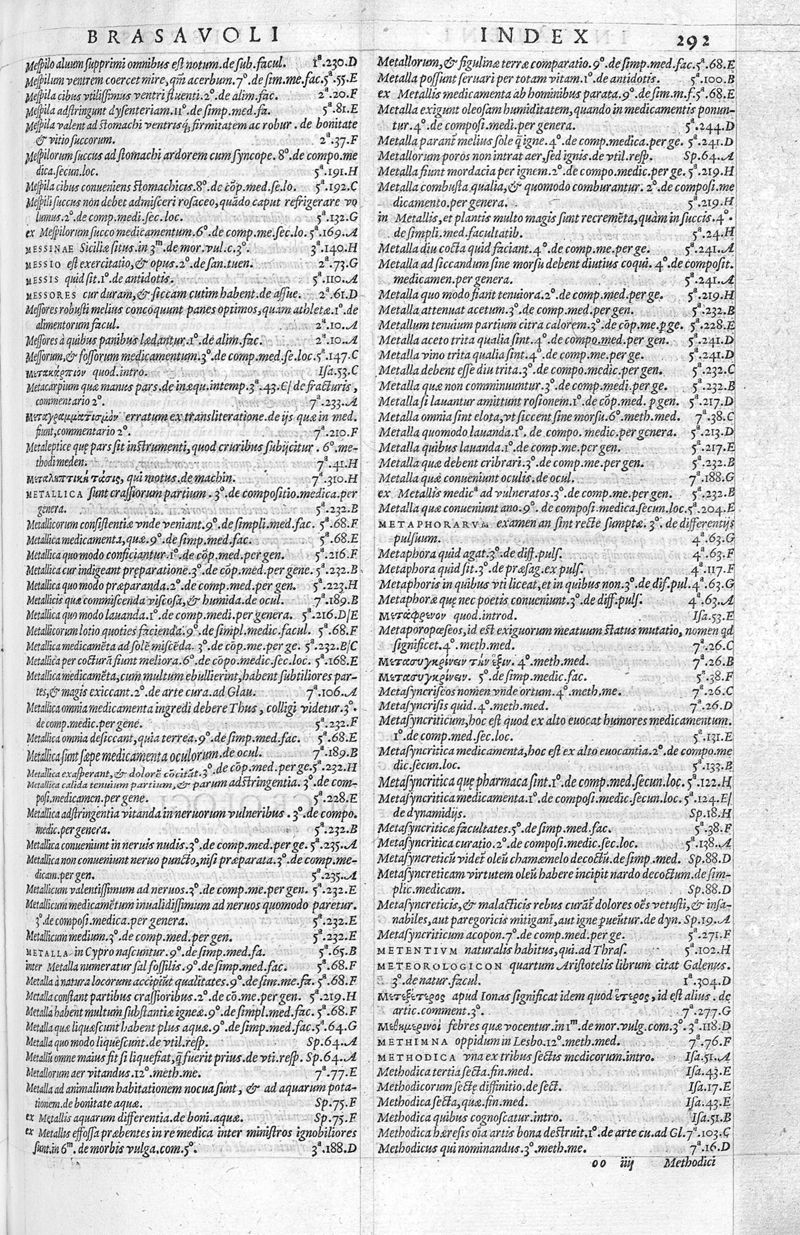 BRASAVOLI
Mespilo aluum supprimi omnibus est notum. de sub. facul. 1ª.230.D
Mespilum ventrem coercet mire, qm̃ acerbum.7°.de sim.me.fac.5ª.55.E
Mespila cibus vtilissimus ventri fluenti.2°.de alim.fac. 2ª.20.F
Mespila adstringunt dysenteriam.11°.de simp.med.fa. 5ª.81.E
Mespila valent ad stomachi ventrisq; firmitatem ac robur. de bonitate
& vitio succorum. 2ª.37.F
Mespilorum succus ad stomachi ardorem cum syncope. 8°.de compo.me
dica.secun.loc. 5ª.191.H
Mespila cibus conueniens stomachicus.8°.de cõp.med.se.lo. 5ª.192.C
Mespili succus non debet admisceri rosaceo, quãdo caput refrigerare vo
lumus.2°.de comp.medi.sec.loc. 5ª.132.G
ex Mespilorum succo medicamentum.6°.de comp.me.sec.lo. 5ª.169.A
MESSINAE Siciliæ situs.in 3ᵐ.de mor.vul.c.3°. 3ª.140.H
MESSIO est exercitatio, & opus.2°.de san.tuen. 2ª.73.G
MESSIS quid sit.1°.de antidotis. 5ª.110.A
MESSORES cur duram, & siccam cutim habent.de assue. 2ª.61.D
Messores robusti melius concoquunt panes optimos, quam athletæ.1°.de
alimentorum facul. 2ª.10.A
Messores à quibus panibus lædantur.1°.de alim.fac. 2ª.10.A
Messorum, & fossorum medicamentum.3°.de comp.med.se.loc.5ª.147.C
Μετακάρπιον quod.intro. Isa.53.C
Metacarpium quæ manus pars.de inæqu.intemp.3ª.43.E/ de fracturis,
commentario 2°. 7ª.233.A
Μεταγραμματισμὸν erratum ex transliteratione.de ijs quæ in med.
fiunt, commentario 2°. 7ª.210.F
Metaleptice quę pars sit instrumenti, quod cruribus subijcitur. 6°.me-
thodi meden. 7ª.41.H
Μεταληπτικὴ τάσις, qui motus.de machin. 7ª.310.H
METALLICA sunt crassiorum partium. 3°.de compositio.medica.per
genera. 5ª.232.B
Metallicorum consistentiæ vnde veniant.9°.de simpli.med.fac. 5ª.68.F
Metallica medicamenta, quæ.9°.de simp.med.fac. 5ª.68.E
Metallica quo modo conficiantur.1°.de cõp.med.per gen. 5ª.216.F
Metallica cur indigeant pręparatione.3°.de cõp.med.per gene.5ª.232.B
Metallica quo modo præparanda.2°.de comp.med.per gen. 5ª.223.H
Metallicis quæ commiscenda viscosa, & humida.de ocul. 7ª.189.B
Metallica quo modo lauanda.1°.de comp.medi.per genera. 5ª.216.D/E
Metallicorum lotio quoties facienda.9°.de simpl.medic.facul. 5ª.68.F
Metallica medicamẽta ad solẽ miscẽda. 3°.de cõp.me.per ge. 5ª.232.B/C
Metallica per cocturã fiunt meliora.6°.de cõpo.medic.sec.loc.5ª.168.E
Metallica medicamẽta, cum multum ebullierint, habent subtiliores par-
tes, & magis exiccant.2°.de arte cura.ad Glau. 7ª.106.A
Metallica omnia medicamenta ingredi debere Thus, colligi videtur.3°.
de comp.medic.per gene. 5ª.232.F
Metallica omnia desiccant, quia terrea.9°.de simp.med.fac. 5ª.68.E
Metallica sunt sæpe medicamenta oculorum.de ocul. 7ª.189.B
Metallica exasperant, & dolorẽ cõcitãt.3°.de cõp.med.per ge.5ª.232.H
Metallica calida tenuium partium, & parum adstringentia. 3°.de com-
posi.medicamen.per gene. 5ª.228.E
Metallica adstringentia vitanda in neruorum vulneribus. 3°.de compo.
medic.per genera. 5ª.232.B
Metallica conueniunt in neruis nudis.3°.de comp.med.per ge.5ª.235.A
Metallica non conueniunt neruo puncto, nisi præparata.3°.de comp.me-
dicam.per gen. 5ª.235.A
Metallicum valentissimum ad neruos.3°.de comp.me.per gen. 5ª.232.E
Metallicum medicamẽtum inualidissimum ad neruos quomodo paretur.
3°.de composi.medica.per genera. 5ª.232.E
Metallicum medium.3°.de comp.med.per gen. 5ª.232.E
METALLA in Cypro nascuntur.9°.de simp.med.fa. 5ª.65.B
inter Metalla numeratur sal fossilis.9°.de simp.med.fac. 5ª.68.F
Metalla à natura locorum accipiũt qualitates.9°.de sim.me.fa. 5ª.68.F
Metalla constant partibus crassioribus.2°.de cõ.me.per gen. 5ª.219.H
Metalla habent multum substantiæ igneæ.9°.de simpl.med.fac. 5ª.68.F
Metalla quæ liquescunt habent plus aquæ.9°.de simp.med.fac.5ª.64.G
Metalla quo modo liquescunt.de vtil.resp. Sp.64.A
Metallũ omne maius fit si liquefiat, q̃ fuerit prius.de vti.resp. Sp.64.A
Metallorum aer vitandus.12°.meth.me. 7ª.77.E
Metalla ad animalium habitationem nocua sunt, & ad aquarum pota-
tionem.de bonitate aquæ. Sp.75.F
ex Metallis aquarum differentia.de boni.aquæ. Sp.75.F
ex Metallis effossa præbentes in re medica inter ministros ignobiliores
sunt.in 6ᵐ.de morbis vulga.com.5°. 3ª.188.D
INDEX 292
Metallorum, & figulinæ terræ comparatio.9°.de simp.med.fac.5ª.68.E
Metalla possunt seruari per totam vitam.1°.de antidotis. 5ª.100.B
ex Metallis medicamenta ab hominibus parata.9°.de sim.m.f.5ª.68.E
Metalla exigunt oleosam humiditatem, quando in medicamentis ponun-
tur.4°.de composi.medi.per genera. 5ª.244.D
Metalla parant̃ melius sole q̃ igne.4°.de comp.medica.per ge. 5ª.241.D
Metallorum poros non intrat aer, sed ignis.de vtil.resp. Sp.64.A
Metalla fiunt mordacia per ignem.2°.de compo.medic.per ge. 5ª.219.H
Metalla combusta qualia, & quomodo comburantur. 2°.de composi.me
dicamento.per genera. 5ª.219.H
in Metallis, et plantis multo magis sunt recremẽta, quàm in succis.4°.
de simpli.med.facultatib. 5ª.24.H
Metalla diu cocta quid faciant.4°.de comp.me.per ge. 5ª.241.A
Metalla ad siccandum sine morsu debent diutius coqui. 4°.de composit.
medicamen.per genera. 5ª.241.A
Metalla quo modo fiant tenuiora.2°.de comp.med.per ge. 5ª.219.H
Metalla attenuat acetum.3°.de comp.med.per gen. 5ª.232.B
Metallum tenuium partium citra calorem.3°.de cõp.me.p̃ge. 5ª.228.E
Metalla aceto trita qualia sint.4°.de compo.med.per gen. 5ª.241.D
Metalla vino trita qualia sint.4°.de comp.me.per ge. 5ª.241.D
Metalla debent esse diu trita.3°.de compo.medic.per gen. 5ª.232.C
Metalla quæ non comminuuntur.3°.de comp.medi.per ge. 5ª.232.B
Metalla si lauantur amittunt rosionem.1°.de cõp.med. p̃gen. 5ª.217.D
Metalla omnia sint elota, vt siccent sine morsu.6°.meth.med. 7ª.38.C
Metalla quomodo lauanda.1°.de compo.medic.per genera. 5ª.213.D
Metalla quibus lauanda.1°.de comp.me.per gen. 5ª.217.E
Metalla quæ debent cribrari.3°.de comp.me.per gen. 5ª.232.B
Metalla quæ conueniunt oculis.de ocul. 7ª.188.G
ex Metallis medicª ad vulneratos.3°.de comp.me.per gen. 5ª.232.B
Metalla quæ conueniunt ano.9°.de composi.medica.secun.loc.5ª.204.E
METAPHORARVM examen an sint recte sumptæ. 3°.de differentijs
pulsuum. 4ª.63.G
Metaphora quid agat.3°.de diff.puls. 4ª.63.F
Metaphora quid sit.3°.de præsag.ex puls. 4ª.117.F
Metaphoris in quibus vti liceat, et in quibus non.3°.de dif.pul.4ª.63.G
Metaphoræ quę nec poetis conueniunt.3°.de diff.puls. 4ª.63.A
Μετάφρενον quod.introd. Isa.53.E
Metaporopœseos, id est exiguorum meatuum status mutatio, nomen qd
significet.4°.meth.med. 7ª.26.C
Μετασυγκρίνειν τὴν ἕξιν.4°.meth.med. 7ª.26.B
Μετασυγκρίνειν. 5°.de simp.medic.fac. 5ª.38.F
Metasyncriseos nomen vnde ortum.4°.meth.me. 7ª.26.C
Metasyncrisis quid.4°.meth.med. 7ª.26.D
Metasyncriticum, hoc est quod ex alto euocat humores medicamentum.
1°.de comp.med.sec.loc. 5ª.131.E
Metasyncritica medicamenta, hoc est ex alto euocantia.2°.de compo.me
dic.sec.loc. 5ª.133.B
Metasyncritica quę pharmaca sint.1°.de comp.med.secun.loc. 5ª.122.H
Metasyncritica medicamenta.1°.composi.medic.secun.loc. 5ª.124.E/
de dynamidijs. Sp.18.H
Metasyncriticæ facultates.5°.de simp.med.fac. 5ª.38.F
Metasyncritica curatio.2°.de composi.medic.sec.loc. 5ª.138.A
Metasyncreticũ videt̃ oleũ chamæmelo decoctũ.de simp.med. Sp.88.D
Metasyncreticam virtutem oleũ habere incipit nardo decoctum.de sim-
plic.medicam. Sp.88.D
Metasyncreticis, & malacticis rebus curant̃ dolores oẽs vetusti, & insa-
nabiles, aut paregoricis mitigant̃, aut igne pueñtur.de dyn. Sp.19.A
Metasyncriticum acopon.7°.de comp.med.per ge. 5ª.271.F
METENTIVM naturalis habitus, qui.ad Thras. 5ª.102.H
METEOROLOGICON quartum Aristotelis librum citat Galenus.
3°.de natur.facul. 1ª.304.D
Μετεξέτερος apud Ionas significat idem quod ἕτερος, id est alius. de
artic.comment.3°. 7ª.277.G
Μεθημερινοὶ febres quæ vocentur.in 1ᵐ.de mor.vulg.com.3°.3ª.118.D
METHIMNA oppidum in Lesbo.12°.meth.med. 7ª.76.F
METHODICA vna ex tribus sectis medicorum.intro. Isa.51.A
Methodica tertia secta.fin.med. Isa.43.E
Methodicorum sectę diffinitio.de sect. Isa.17.E
Methodica secta, quæ.fin.med. Isa.43.E
Methodica quibus cognoscatur.intro. Isa.51.B
Methodica hæresis oĩa artis bona destruit.1°.de arte cu.ad Gl.7ª.103.C
Methodicus qui nominandus.3°.meth.me. 7ª.16.D
oo iiij Methodici